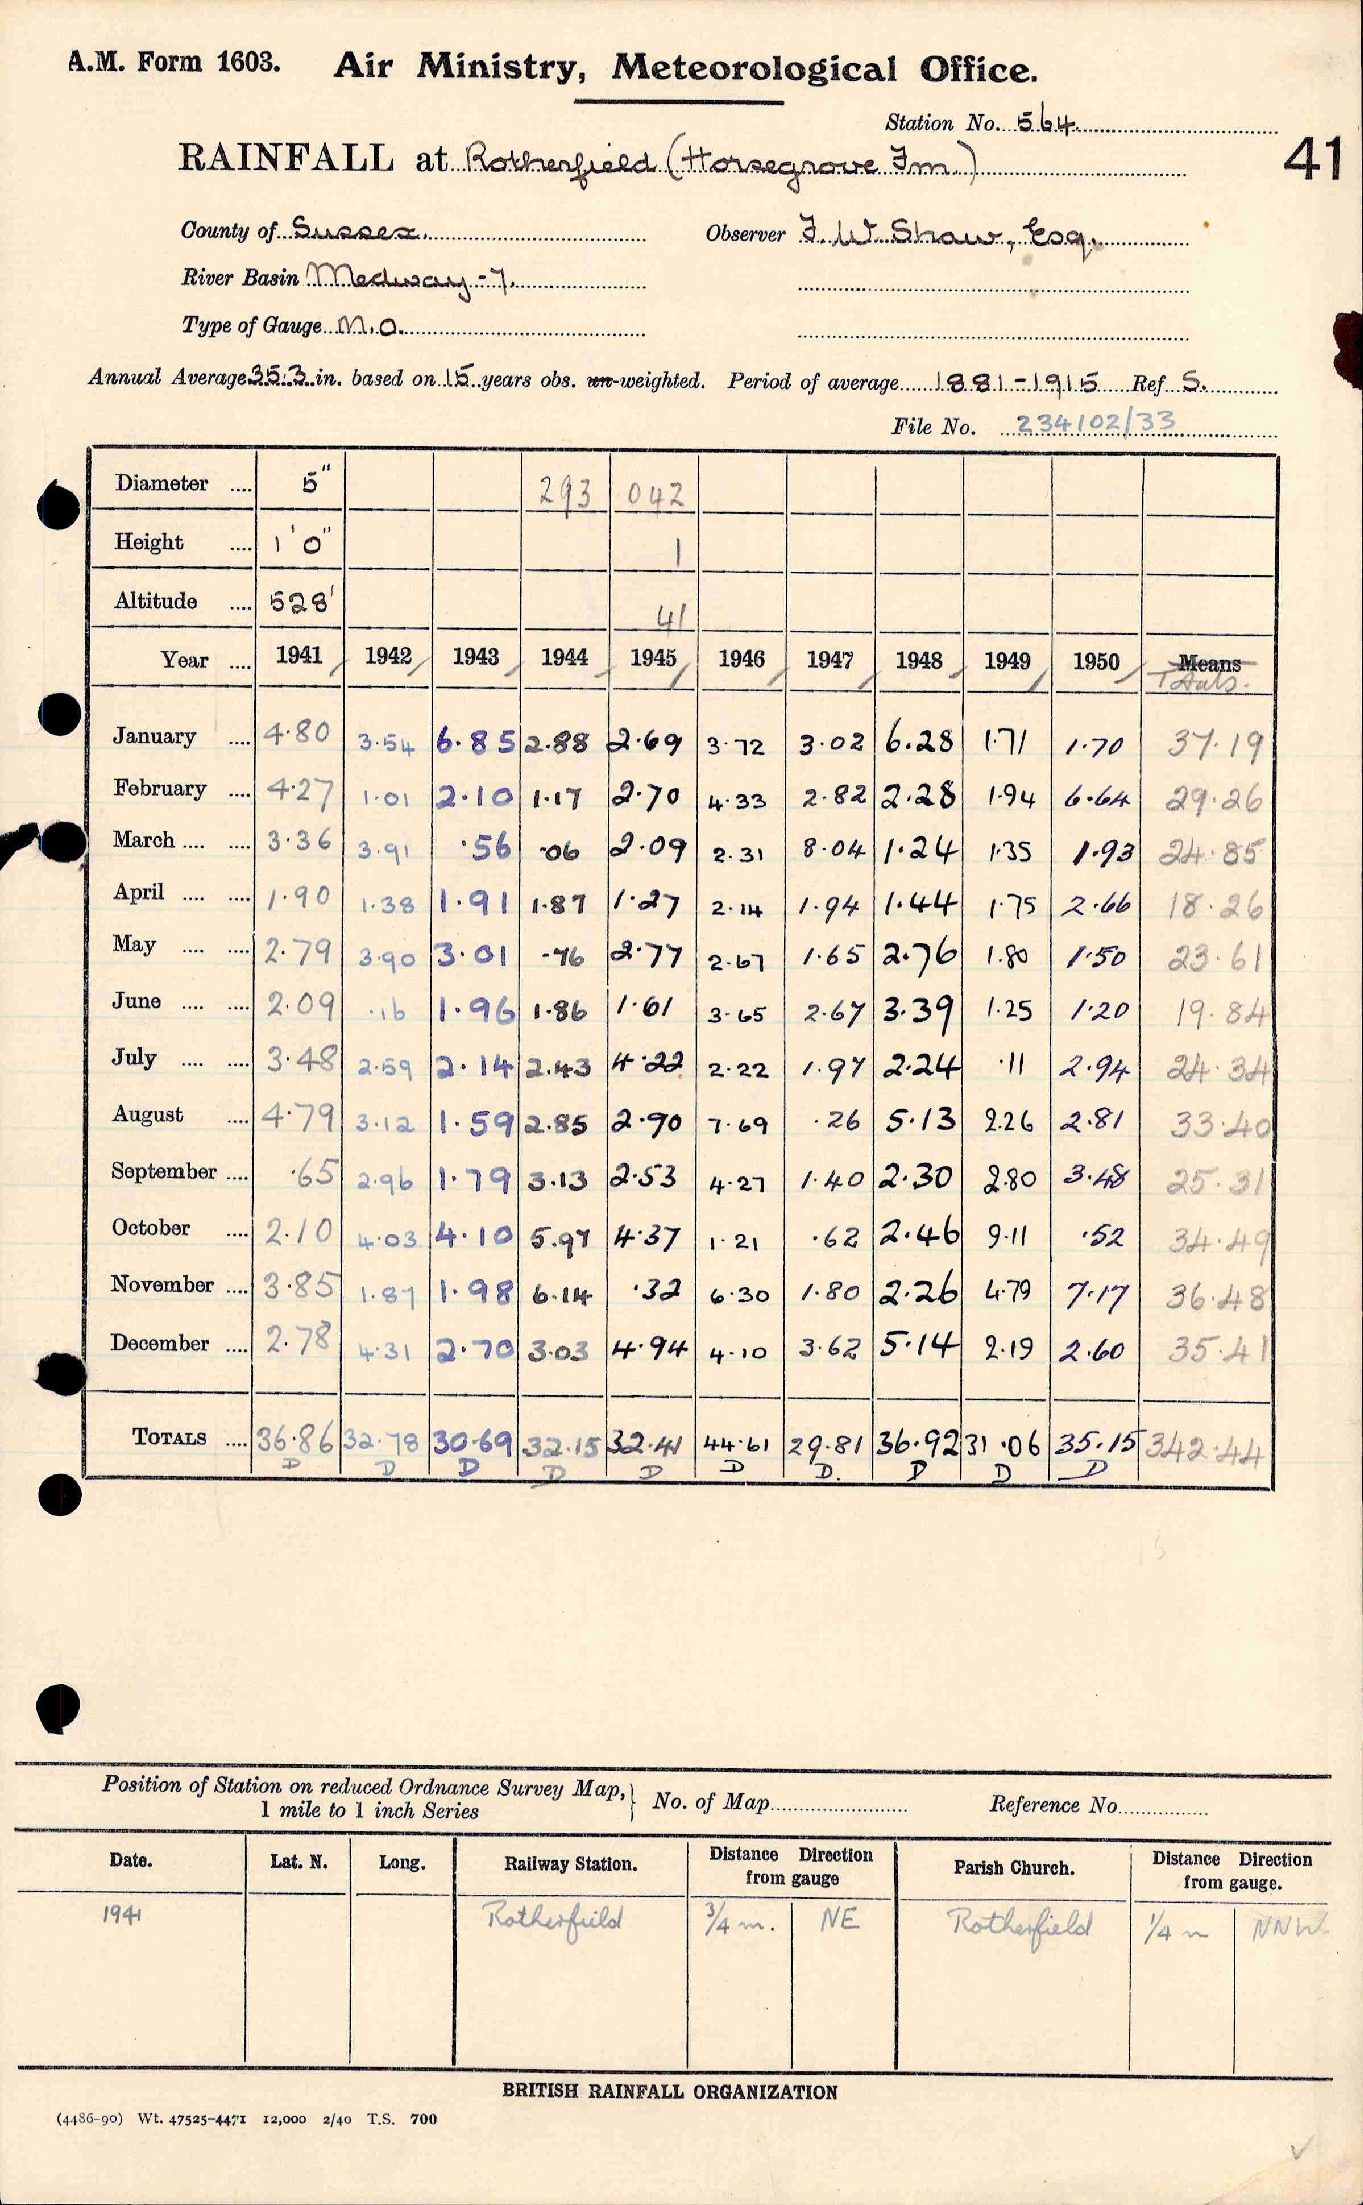 A.M. Form 1603. Air Ministry, Meteorological Office.
Station No. 564
41
RAINFALL at Rotherfield (Horsegrove Fm.)
County of Sussex. Observer F. W. Shaw, Esq.
River Basin Medway-7.
Type of Gauge M.O.
Annual Average 35.3 in. based on 15 years obs. un-weighted. Period of average 1881-1915 Ref S.
File No. 234102/33
Diameter .... 5" 293 042
Height .... 1'0" 1
Altitude .... 528' 41
Year .... 1941 1942 1943 1944 1945 1946 1947 1948 1949 1950 Means
Totals.
January .... 4.80 3.54 6.85 2.88 2.69 3.72 3.02 6.28 1.71 1.70 37.19
February .... 4.27 1.01 2.10 1.17 2.70 4.33 2.82 2.28 1.94 6.64 29.26
March .... .... 3.36 3.91 .56 .06 2.09 2.31 8.04 1.24 1.35 1.93 24.85
April .... .... 1.90 1.38 1.91 1.87 1.27 2.14 1.94 1.44 1.75 2.66 18.26
May .... .... 2.79 3.90 3.01 .76 2.77 2.67 1.65 2.76 1.80 1.50 23.61
June .... .... 2.09 .16 1.96 1.86 1.61 3.65 2.67 3.39 1.25 1.20 19.84
July .... .... 3.48 2.59 2.14 2.43 4.22 2.22 1.97 2.24 .11 2.94 24.34
August .... 4.79 3.12 1.59 2.85 2.90 7.69 .26 5.13 2.26 2.81 33.40
September .... .65 2.96 1.79 3.13 2.53 4.27 1.40 2.30 2.80 3.48 25.31
October .... 2.10 4.03 4.10 5.97 4.37 1.21 .62 2.46 9.11 .52 34.49
November .... 3.85 1.87 1.98 6.14 .32 6.30 1.80 2.26 4.79 7.17 36.48
December .... 2.78 4.31 2.70 3.03 4.94 4.10 3.62 5.14 2.19 2.60 35.41
TOTALS .... 36.86 32.78 30.69 32.15 32.41 44.61 29.81 36.92 31.06 35.15 342.44
D D D D D D D. D D D
Position of Station on reduced Ordnance Survey Map, } No. of Map Reference No.
1 mile to 1 inch Series
Date. Lat. N. Long. Railway Station. Distance Direction from gauge Parish Church. Distance Direction from gauge.
1941 Rotherfield 3/4 m. NE Rotherfield 1/4 m NNW
BRITISH RAINFALL ORGANIZATION
(4486-90) Wt. 47525-4471 12,000 2/40 T.S. 700